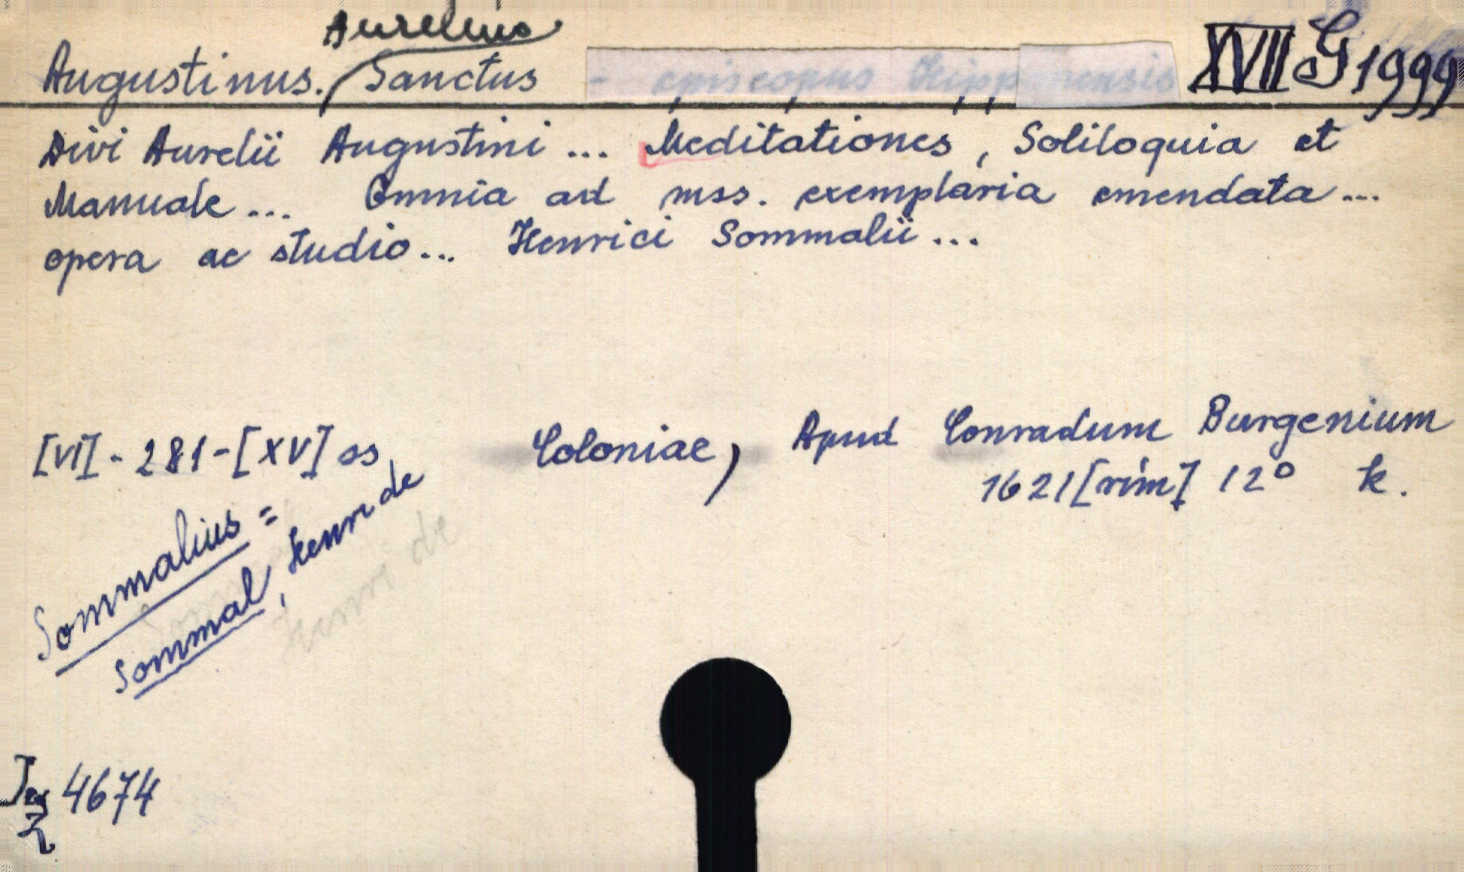 Aurelius
Augustinus. Sanctus - episcopus Hipponensis XVII G 1999
Divi Aurelii Augustini ... Meditationes, Soliloquia et
Manuale ... Omnia ad mss. exemplaria emendata ...
opera ac studio ... Henrici Sommalii ...
[VI] - 281 - [XV] ss Coloniae, Apud Conradum Burgenium
1621 [rím] 12° k.
Sommalius =
Sommal, Henri de
Henri de
4674